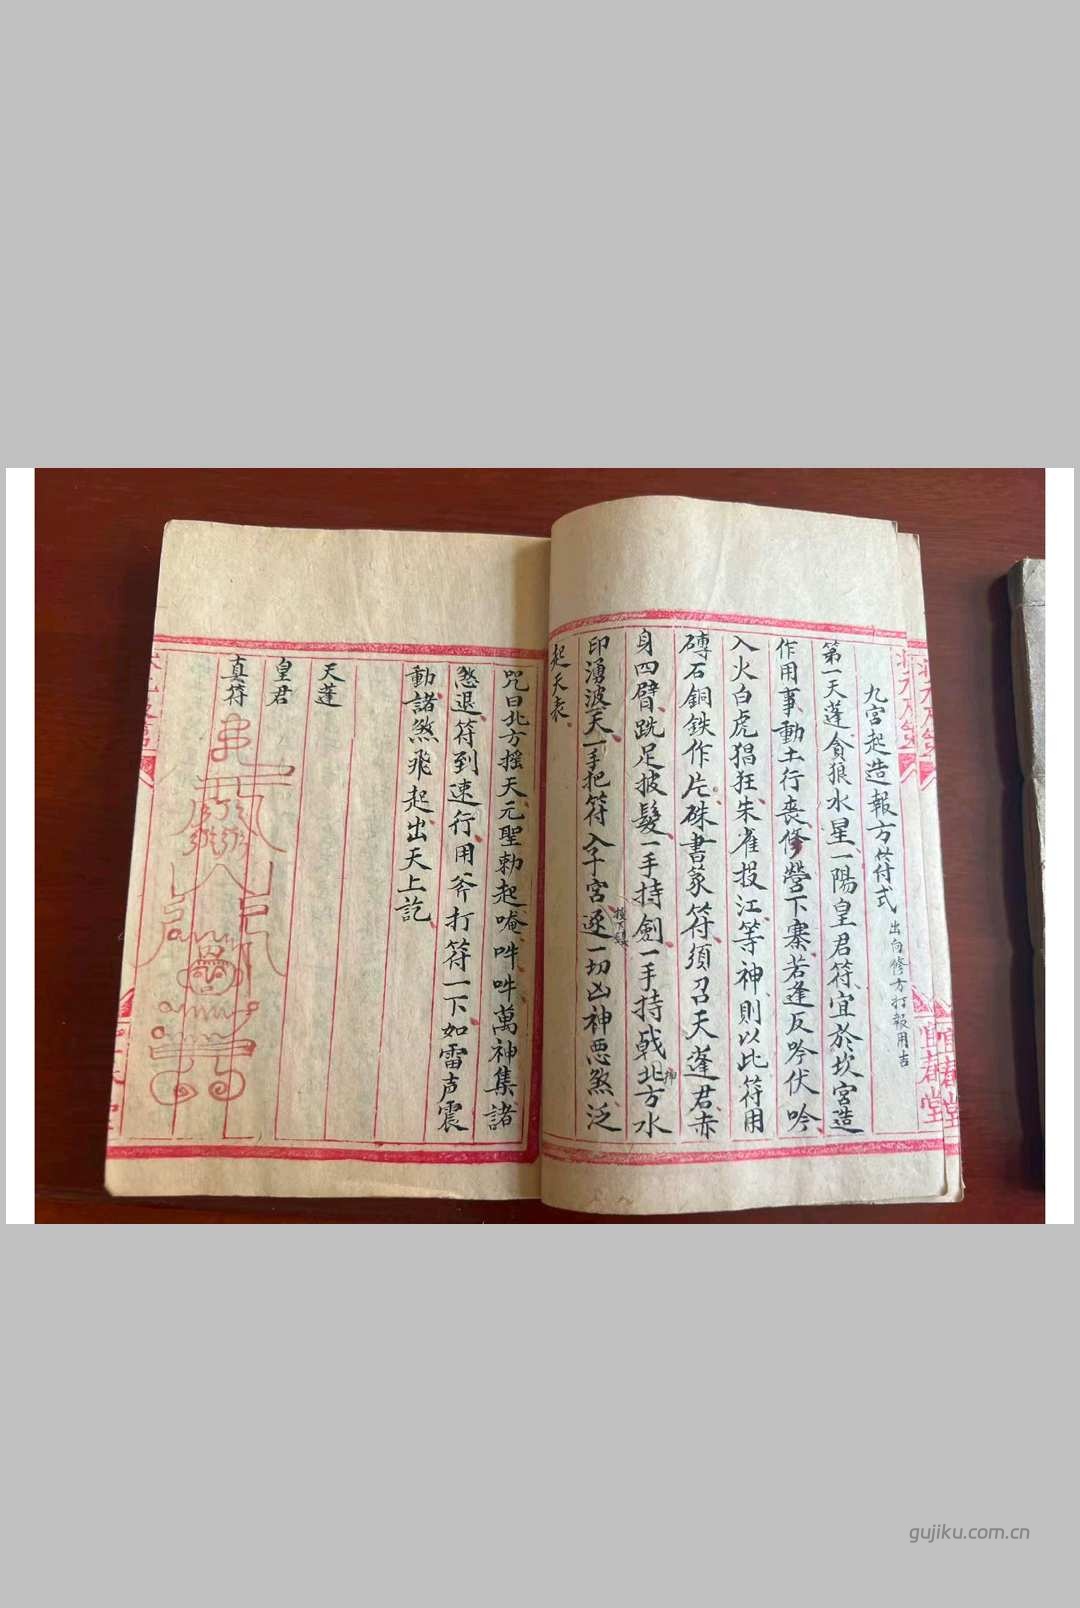 九宮起造報方供付式 出向修方打報用吉
第一天蓬貪狼水星一陽皇君符宜於坎宮造
作用事動土行喪修營下寨若逢反吟伏吟
入火白虎猖狂朱雀投江等神則以此符用
磚石銅鉄作片硃書篆符須召天蓬君赤
身四臂跣足披髮一手持劍一手持戟北方水
印湧波天一手把符入子宮逐一切凶神悪煞泛
起天表
咒曰北方揺天元聖勅起唵吽吽萬神集諸
煞退符到速行用斧打符一下如雷声震
動諸煞飛起出天上訖
天蓬
皇君
真符
宜春堂
gujiku.com.cn